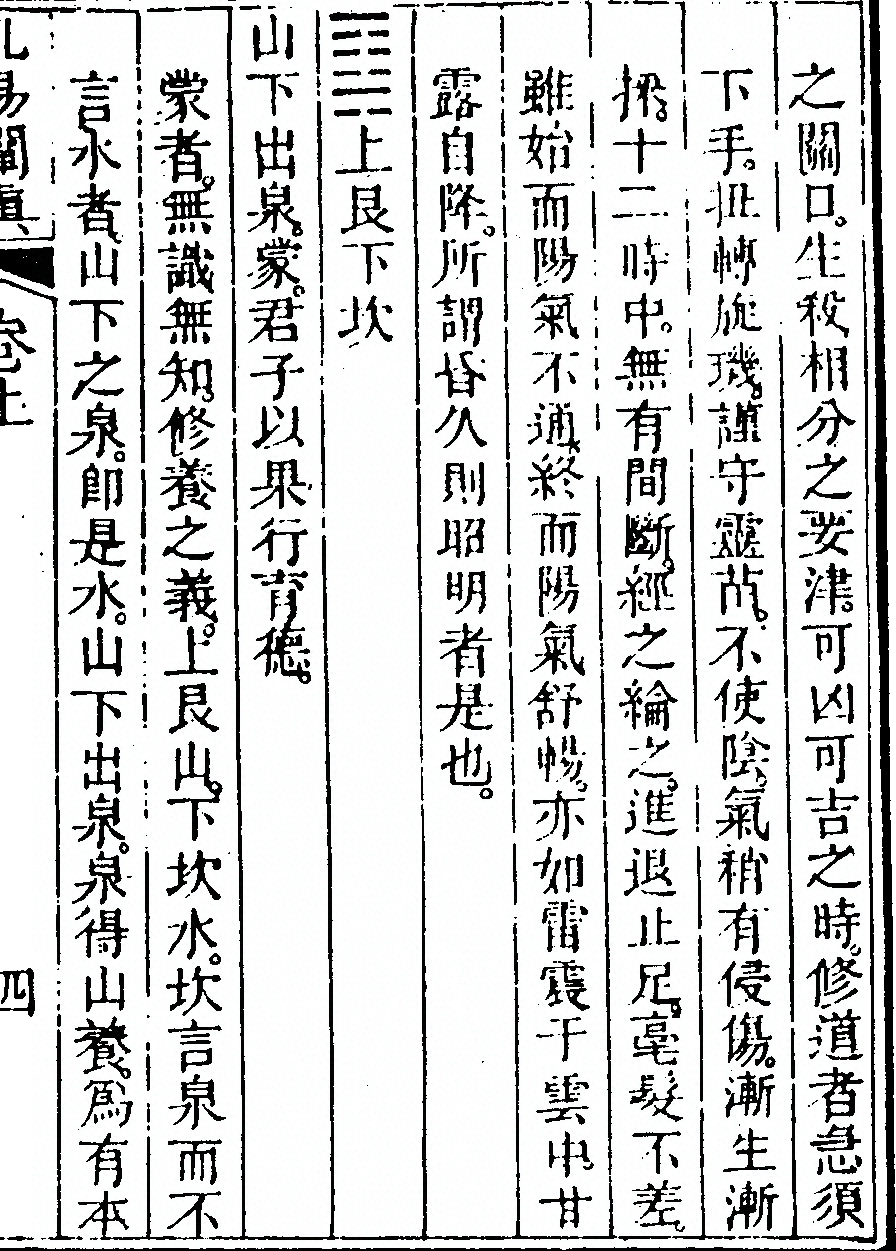 之關口。生殺相分之要津。可凶可吉之時。修道者急須
下手。扭轉旋璣。謹守靈苗。不使陰氣稍有侵傷。漸生漸
採。十二時中。無有間斷。經之綸之。進退止足。毫髮不差。
雖始而陽氣不通。終而陽氣舒暢。亦如雷震于雲中。甘
露自降。所謂昏久則昭明者是也。
䷃上艮下坎
山下出泉。蒙。君子以果行育德。
蒙者。無識無知。修養之義。上艮山。下坎水。坎言泉而不
言水者。山下之泉。即是水。山下出泉。泉得山養。爲有本
孔易闡真
卷上
四